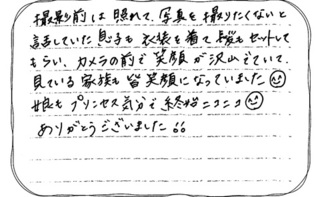 撮影前は照れて、写真を撮りたくないと
話していた息子も衣装を着て髪もセットして
もらい、カメラの前で笑顔が沢山でていて、
見ている家族も皆笑顔になっていました
娘もプリンセス気分で終始ニコニコ
ありがとうございました!!